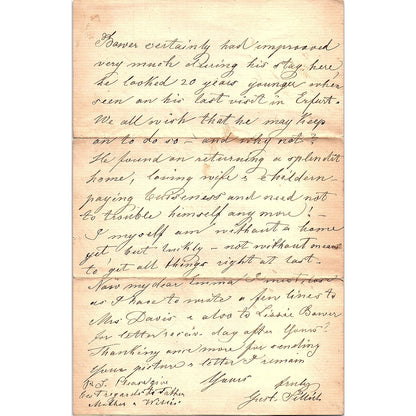 Bower certainly had improoved
very much during his stay here
he looked 20 years younger when
seen an his last visit in Erfurt.
We all wish that he may keep
on to do so – and why not?
He found on returning a splendit
home, loving wife & childern –
paying buiseness and need not
to trouble himself any more! –
I myself am without a home
yet but luckly – not without means
to get all things right at last.
Now my dear Emma I must close
as I have to write a few lines to
Mrs Davis & also to Lizzie Bower
for letter receiv. day after Yours.
Thanking once more for sending
Your picture & letter I remain
Yours truly
Gust.
P.S. Please give
best regards to Father
Mother &